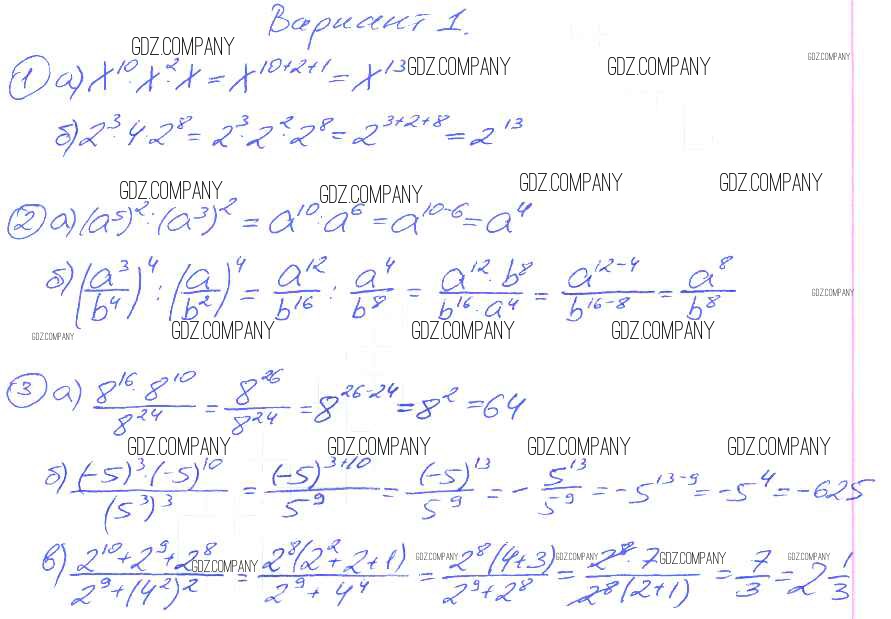 Вариант 1.
GDZ.COMPANY
GDZ.COMPANY GDZ.COMPANY GDZ.COMPANY
① а) x¹⁰·x²·x = x¹⁰⁺²⁺¹ = x¹³
б) 2³·4·2⁸ = 2³·2²·2⁸ = 2³⁺²⁺⁸ = 2¹³
GDZ.COMPANY GDZ.COMPANY GDZ.COMPANY GDZ.COMPANY
② а) (a⁵)²:(a³)² = a¹⁰:a⁶ = a¹⁰⁻⁶ = a⁴
б) (a³/b⁴)⁴ : (a/b²)⁴ = a¹²/b¹⁶ : a⁴/b⁸ = a¹²·b⁸/b¹⁶·a⁴ = a¹²⁻⁴/b¹⁶⁻⁸ = a⁸/b⁸
GDZ.COMPANY
GDZ.COMPANY GDZ.COMPANY GDZ.COMPANY GDZ.COMPANY
③ а) 8¹⁶·8¹⁰/8²⁴ = 8²⁶/8²⁴ = 8²⁶⁻²⁴ = 8² = 64
GDZ.COMPANY GDZ.COMPANY GDZ.COMPANY GDZ.COMPANY
б) (-5)³·(-5)¹⁰/(5³)³ = (-5)³⁺¹⁰/5⁹ = (-5)¹³/5⁹ = - 5¹³/5⁹ = -5¹³⁻⁹ = -5⁴ = -625
в) 2¹⁰+2⁹+2⁸/2⁹+(4²)² = 2⁸(2²+2+1)/2⁹+4⁴ = 2⁸(4+3)/2⁹+2⁸ = 2⁸·7/2⁸(2+1) = 7/3 = 2 1/3
GDZ.COMPANY GDZ.COMPANY GDZ.COMPANY GDZ.COMPANY GDZ.COMPANY